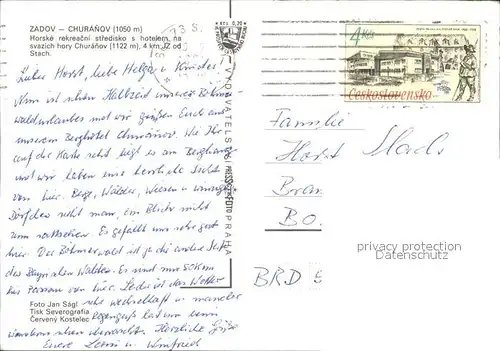 ZADOV – CHURÁŇOV (1050 m)
Horské rekreační středisko s hotelem na
svazích hory Churáňov (1122 m), 4 km JZ od
Stach.
Lieber Horst, liebe Helga u. Kinder!
Nun ist schon Halbzeit unseres Böhmer-
waldurlaubes und wir grüßen Euch aus
unserem Berghotel Churáňov. Wie Ihr
auf der Karte seht liegt es am Berghang
und wir haben eine herrliche Sicht
von hier. Berge, Wälder, Wiesen u. winzige
Dörfchen sieht man, ein Blick nicht
zum
Es gefällt uns sehr gut
hier. Der Böhmerwald ist ja die andere Seite
des Bayrischen Waldes. Es sind nur 50km
bis Passau von hier. Leider ist das Wetter
sehr wechselhaft u. mancher
Regenguß hat uns beim
Wandern schon überrascht. Herzliche Grüße
Eure u.
Foto Jan Ságl
Tisk Severografia
Červený Kostelec
VYDAVATELSTVÍ PRESSFOTO PRAHA
Kčs 0,20
73 S
4 Kčs
Československo
Familie
Horst
BRD
privacy protection
Datenschutz